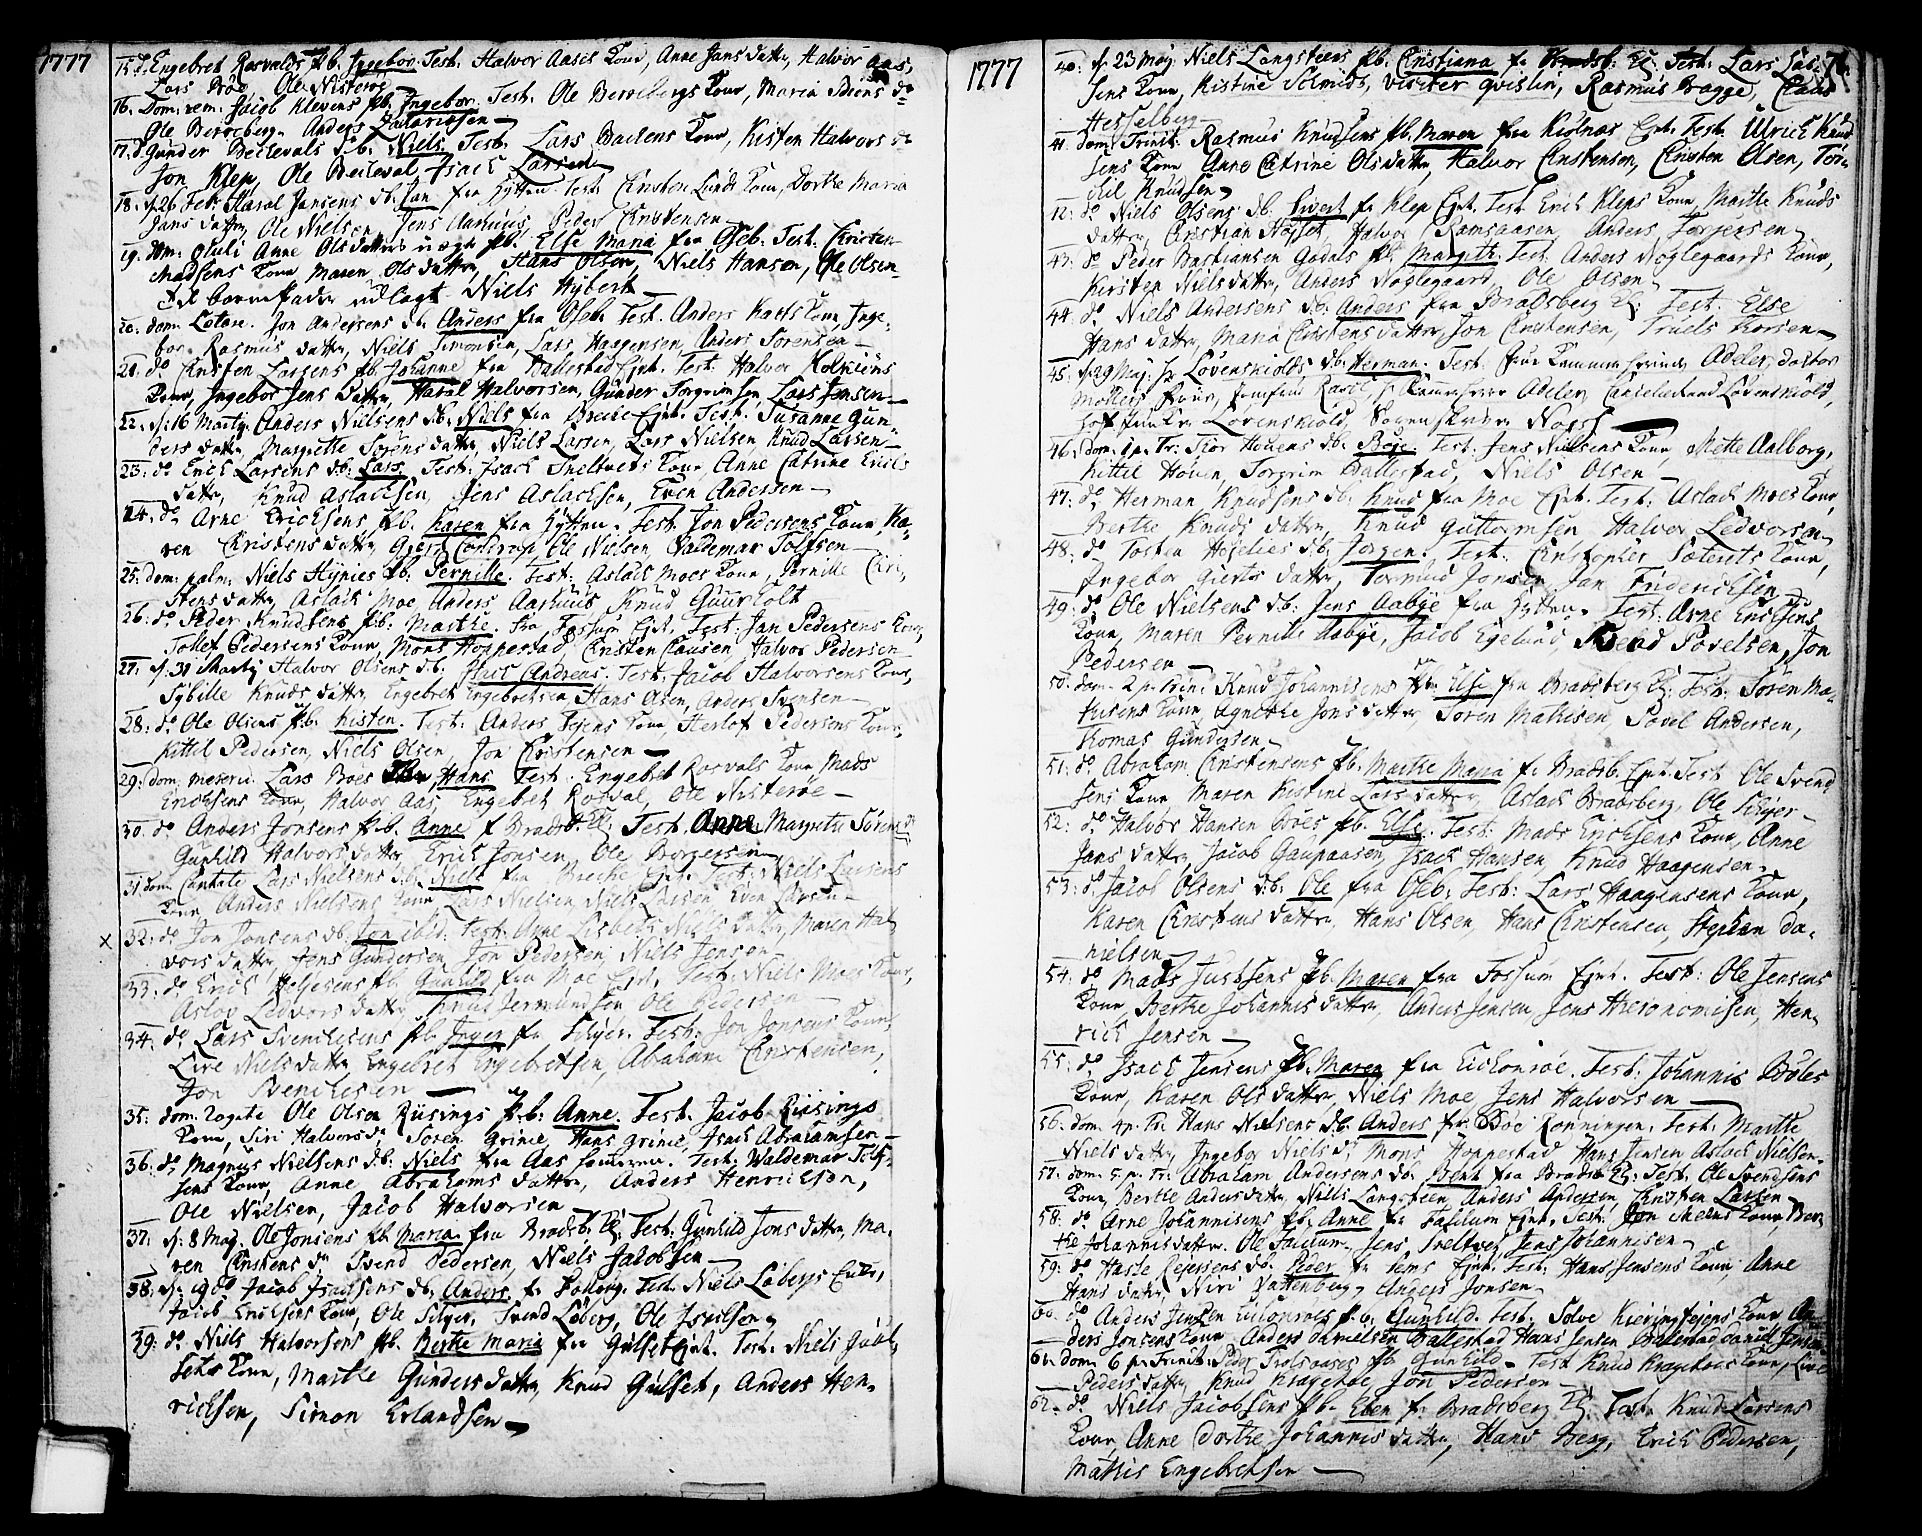 1777
15. d: Engebret Rosvalds pb. Ingebor Test. Halvor Aases Kone, Anne Jans datter, Halvor Aas,
Lars Boe, Ole Nisterøe
16. Dom: rem: Jacob Klevens pb. Ingebor. Test. Ole Berrebergs Kone, Maria
Ole Berreberg. Anders Zachariesen
17. d: Gunder Beilevals db. Niels. Test. Lars Bachens Kone, Kisten Halvors d:
Jon Klep, Ole Beileval, Isach Larsen
18. d: 26 Feb: Harol Jansens db. Jan fra Hytten. Test. Christen Lunds Kone, Dorthe Maria
Jans datter, Ole Nielsen, Jens Aarhuus, Peder Christensen
19. dom: oculi Anne Ols datters uægte pb. Else Maria fra Oseb: Test. Christen
Madsens Kone, Maren Ols datter, Hans Olsen, Niels Hansen, Ole Olsen
Til barnefader udlagt Niels Hybert
20. dom: Lætare. Jon Andersens db. Anders fra Oseb. Test. Anders Kaass Kone, Inge-
bor Rasmus datter, Niels Simonsen, Lars Haagensen, Anders Sørensen
21. d: Christen Larsens pb. Johanne fra Ballestad Ejet. Test. Halvor Kolkiins
Kone, Ingebor Jens datter, Harol Halvorsen, Gunder Torgrimsen Lars Jensen
22. d: 16 Marty. Anders Nielsens db. Niels fra Breche Ejet. Test. Susanne Gun-
ders datter, Margrethe Sørens datter, Niels Larsen, Lars Nielsen, Knud Larsen
23. d: Erich Larsens db. Lars. Test: Isach Sneltvets Kone, Anne Catrine Erichs
datter, Knud Aslachsen, Jens Aslachsen, Even Andersen
24. d: Arne Erichsens pb. Karen fra Hytten. Test. Jon Pedersens Kone, Ka-
ren Christens datter, Ole Nielsen, Valdemar Tolfsen
25. dom: palm: Niels Hynies pb. Pernille. Test. Aslach Moes Kone, Pernille Chri-
stens datter, Aslach Moe, Anders Aarhuus, Knud Guurholt
26. d: Peder Knudsens pb. Marthe. fra Fossum Ejet. Test: Jan Pedersens Kone,
Tollef Pedersens Kone, Mons Hoppestad, Christen Clausen, Halvor Pedersen
27. d: 31 Marty Halvor Olsens db. Andreas. Test. Jacob Halvorsens Kone,
Sybille Knuds datter, Engebret Engebretsen, Hans Olsen, Anders Svensen
28. d: Ole Olsens pb. Kisten. Test: Anders Bojens Kone, Herlof Pedersens Kone,
Kittel Pedersen, Niels Olsen, Jon Christensen
29. dom: miseric: Lars Boes Hans Test. Engebret Rosvals Kone, Mads
Erichsens Kone, Halvor Aas, Engebret Rosval, Ole Nisterøe
30. d: Anders Jonsens pb. Anne f. Bradsb. Ej: Test. Anne Margrethe Sørens d:
Gunhild Halvors datter, Erich Jonsen, Ole Borgersen
31. dom: Cantate Lars Nielsens db. Niels fra Breche Ejet. Test: Niels Larsens
Kone, Anders Nielsens Kone, Lars Nielsen, Niels Larsen, Even Larsen
x 32. d: Jon Jonsens db. Jon ibid: Test. Anne Lisbeth Niels datter, Maren Hal-
vors datter, Jens Gundersen, Jon Pedersen, Niels Jensen
33. d: Erich Helgesens pb. Gunild fra Moe Ejet. Test. Niels Moes Kone,
Aslov Ledvors datter, Knud Jermundsen, Ole Pedersen
34. d: Lars Svenchesens pb. Inger fra Silger. Test. Jon Jonsens Kone,
Live Niels datter, Engebret Engebretsen, Abraham Christensen,
Jon Svenchesen
35. dom: rogate Ole Olsen Riisings pb. Anne. Test. Jacob Riisings
Kone, Siri Halvors d: Søren Grinie, Hans Grinie, Isach Abrahamsen
36. d: Magnus Nielsens db. Niels fra Aas. Test. Waldemar Tolf-
sens Kone, Anne Abrahams datter, Anders Henrichson,
Ole Nielsen, Jacob Halvorsen
37. d: 8 Maj. Ole Jonsens pb. Maria. fra Bradsb: Ej: Test. Gunhild Jons datter, Ma-
ren Christens d: Svend Pedersen, Niels Jacobsen
38. d: 19 d: Jacob Isachsens db. Anders. fr. Foßberg. Test. Niels Løbergs Enke,
Jacob Erichsens Kone, Ole Silger, Svend Løberg, Ole Isachsen
39. d: Niels Halvorsens pb. Berthe Maria fra Gulset Ejet. Test. Niels Gul-
sets Kone, Marthe Gunders datter, Knud Gulset, Anders Hen-
richsen, Simon Erlandsen
1777
40. d: 23 Maj. Niels Langsteens pb. Christiana fr. Bradsb. Ej: Test. Lars 
sens Kone, Kistine Schmids, visiter Qvislin, Rasmus Bagge, Claus
Hesselberg
41. dom: Trinit. Rasmus Knudsens pb. Maren fra Kiølnæs Ejet. Test. Ulrich Knud-
sens Kone, Anne Catrine Ols datter, Halvor Christensen, Christen Olsen, Tor-
chil Knudsen
42. d: Niels Olsens db. Sivert fr. Klep Ejet. Test. Erich Kleps Kone, Marthe Knuds
datter, Christian Hosset, Halvor Ramsaasen, Anders Torgersen
43. d: Peder Bastiansen Godals pb. Margith. Test. Anders Noglegaards Kone,
Kirsten Niels datter, Anders Noglegaard, Ole Olsen
44. d: Niels Andersens db. Anders fra Bradsberg Ej: Test. Else
Hans datter, Maria Christens datter, Jon Christensen, Truels Korsen
45. d: 29 Maj: Hr. Løvenskiolds db. Herman. Test. Frue Kammerherrinde Adeler, doctor
Møllers Frue, Jomfrue Rasch, Hr. Kammerherre Adeler, Cancelieraad Løvenskiold,
Hofjunker Løvenskiold, Sogneskriver Norss
46. dom: 1 p. Tr: Thor Hovens db. Boje. Test. Jens Nielsens Kone, Mette Aalborg,
Kittil Hoven, Torgrim Ballestad, Niels Olsen
47. d: Herman Knudsens db. Knud fra Moe Ejet. Test: Aslach Moes Kone,
Berthe Knuds datter, Knud Guttormsen, Halvor Ledvorsen
48. d: Tosten Hoselies db. Jorgen. Test. Christopher Kone,
Ingebor Gierts datter, Tormud Jonsen, Jan Friderichsen
49. d: Ole Nielsens db. Jens Aabye fra Hytten. Test: Arne Erichsens
Kone, Maren Pernille Aabye, Jacob Egelund, Svend Povelsen, Jon
Pedersen
50. dom: 2 p. Trin: Knud Johannesens pb. Else fra Bradsberg Ej: Test. Søren Ma-
thisens Kone, Agnethe Jons datter, Søren Mathisen, Povel Andersen,
Thomas Gundersen
51. d: Abraham Christensens pb. Marthe Maria fr. Bradsb. Ejet. Test. Ole Svend-
sens Kone, Maren Kistine Lars datter, Aslach Bradsberg, Ole Silger
52. d: Halvor Hansen Boes pb. Else. Test: Mads Erichsens Kone, Anne
Jans datter, Jacob Gaupaasen, Isach Hansen, Knud Haagensen
53. d: Jacob Olsens db. Ole fra Oseb: Test: Lars Haagensens Kone,
Karen Christens datter, Hans Olsen, Hans Christensen, Stephen Da-
nielsen
54. d: Mads Justsens pb. Maren fra Fossum Ejet. Test: Ole Jensens
Kone, Berthe Johannis datter, Anders Jensen, Jens Hieronomisen, Hen-
rich Jensen
55. d: Isach Jensens pb. Maren fra Eichonrøe. Test: Johannis Bøles
Kone, Karen Ols datter, Niels Moe, Jens Halvorsen
56. dom: 4 p. Tr. Hans Nielsens db. Anders fr. Bøe Ronningen. Test: Marthe
Niels datter, Ingebor Niels d: Mons Hoppestad, Hans Jensen, Aslach Nielsen
57. dom: 5. p. Tr: Abraham Andersens db. Bent fra Bradsb. Ej: Test: Ole Svendsens
Kone, Berthe Anders datter, Niels Langsteen, Anders Andersen, Christen Larsen
58. d: Arne Johannisens pb. Anne fr. Fossum Ejet. Test: Jon Kone, Ber-
the Johannis datter. Ole Fossum. Jens Sneltvet, Jens Johannisen
59. d: Hasle Reiersens db: Peder fr. Ejet. Test: Hans Jensens Kone, Anne
Hans datter, Niri Anders Jonsen
60. d: Anders Jensen Eichonrøes pb. Gunhild. Test. Solve Kieringteigens Kone, An-
ders Jonsens Kone, Anders Danielsen Ballestad, Hans Jensen Ballestad, Daniel Jensen
61. Dom: 6 p. Trinit: Peder pb. Gunhild. Test. Knud Kragehøes Kone, Live
Peders datter, Knud Kragehøe, Jon Pedersen
62. d: Niels Jacobsens pb. Ellen fr. Bradsberg Ej: Test. Knud Larsens
Kone, Anne Dorthe Johannis datter, Hans Berg, Erich Pedersen,
Mathis Engebretsen